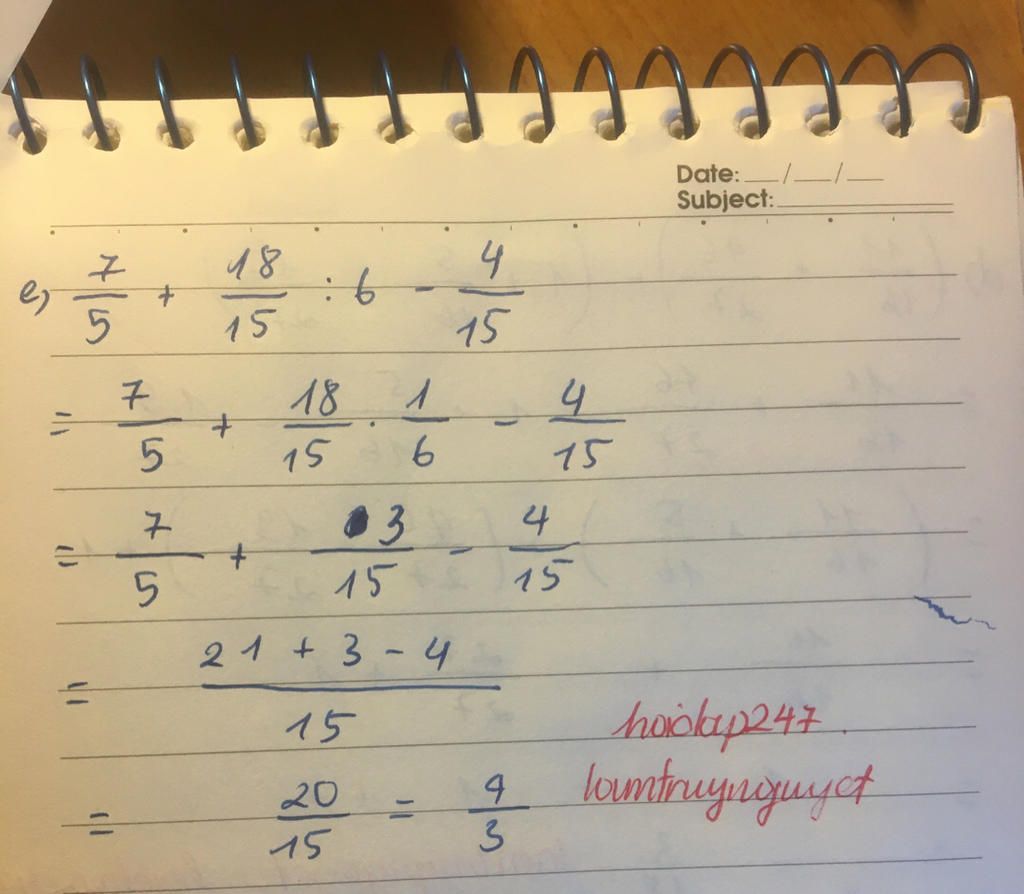 Date: __/__/__
Subject:
e, 7/5 + 18/15 : 6 - 4/15
= 7/5 + 18/15 . 1/6 - 4/15
= 7/5 + 3/15 - 4/15
= 21 + 3 - 4/15
= 20/15 = 4/3
hoidap247.
lamtruynguyet